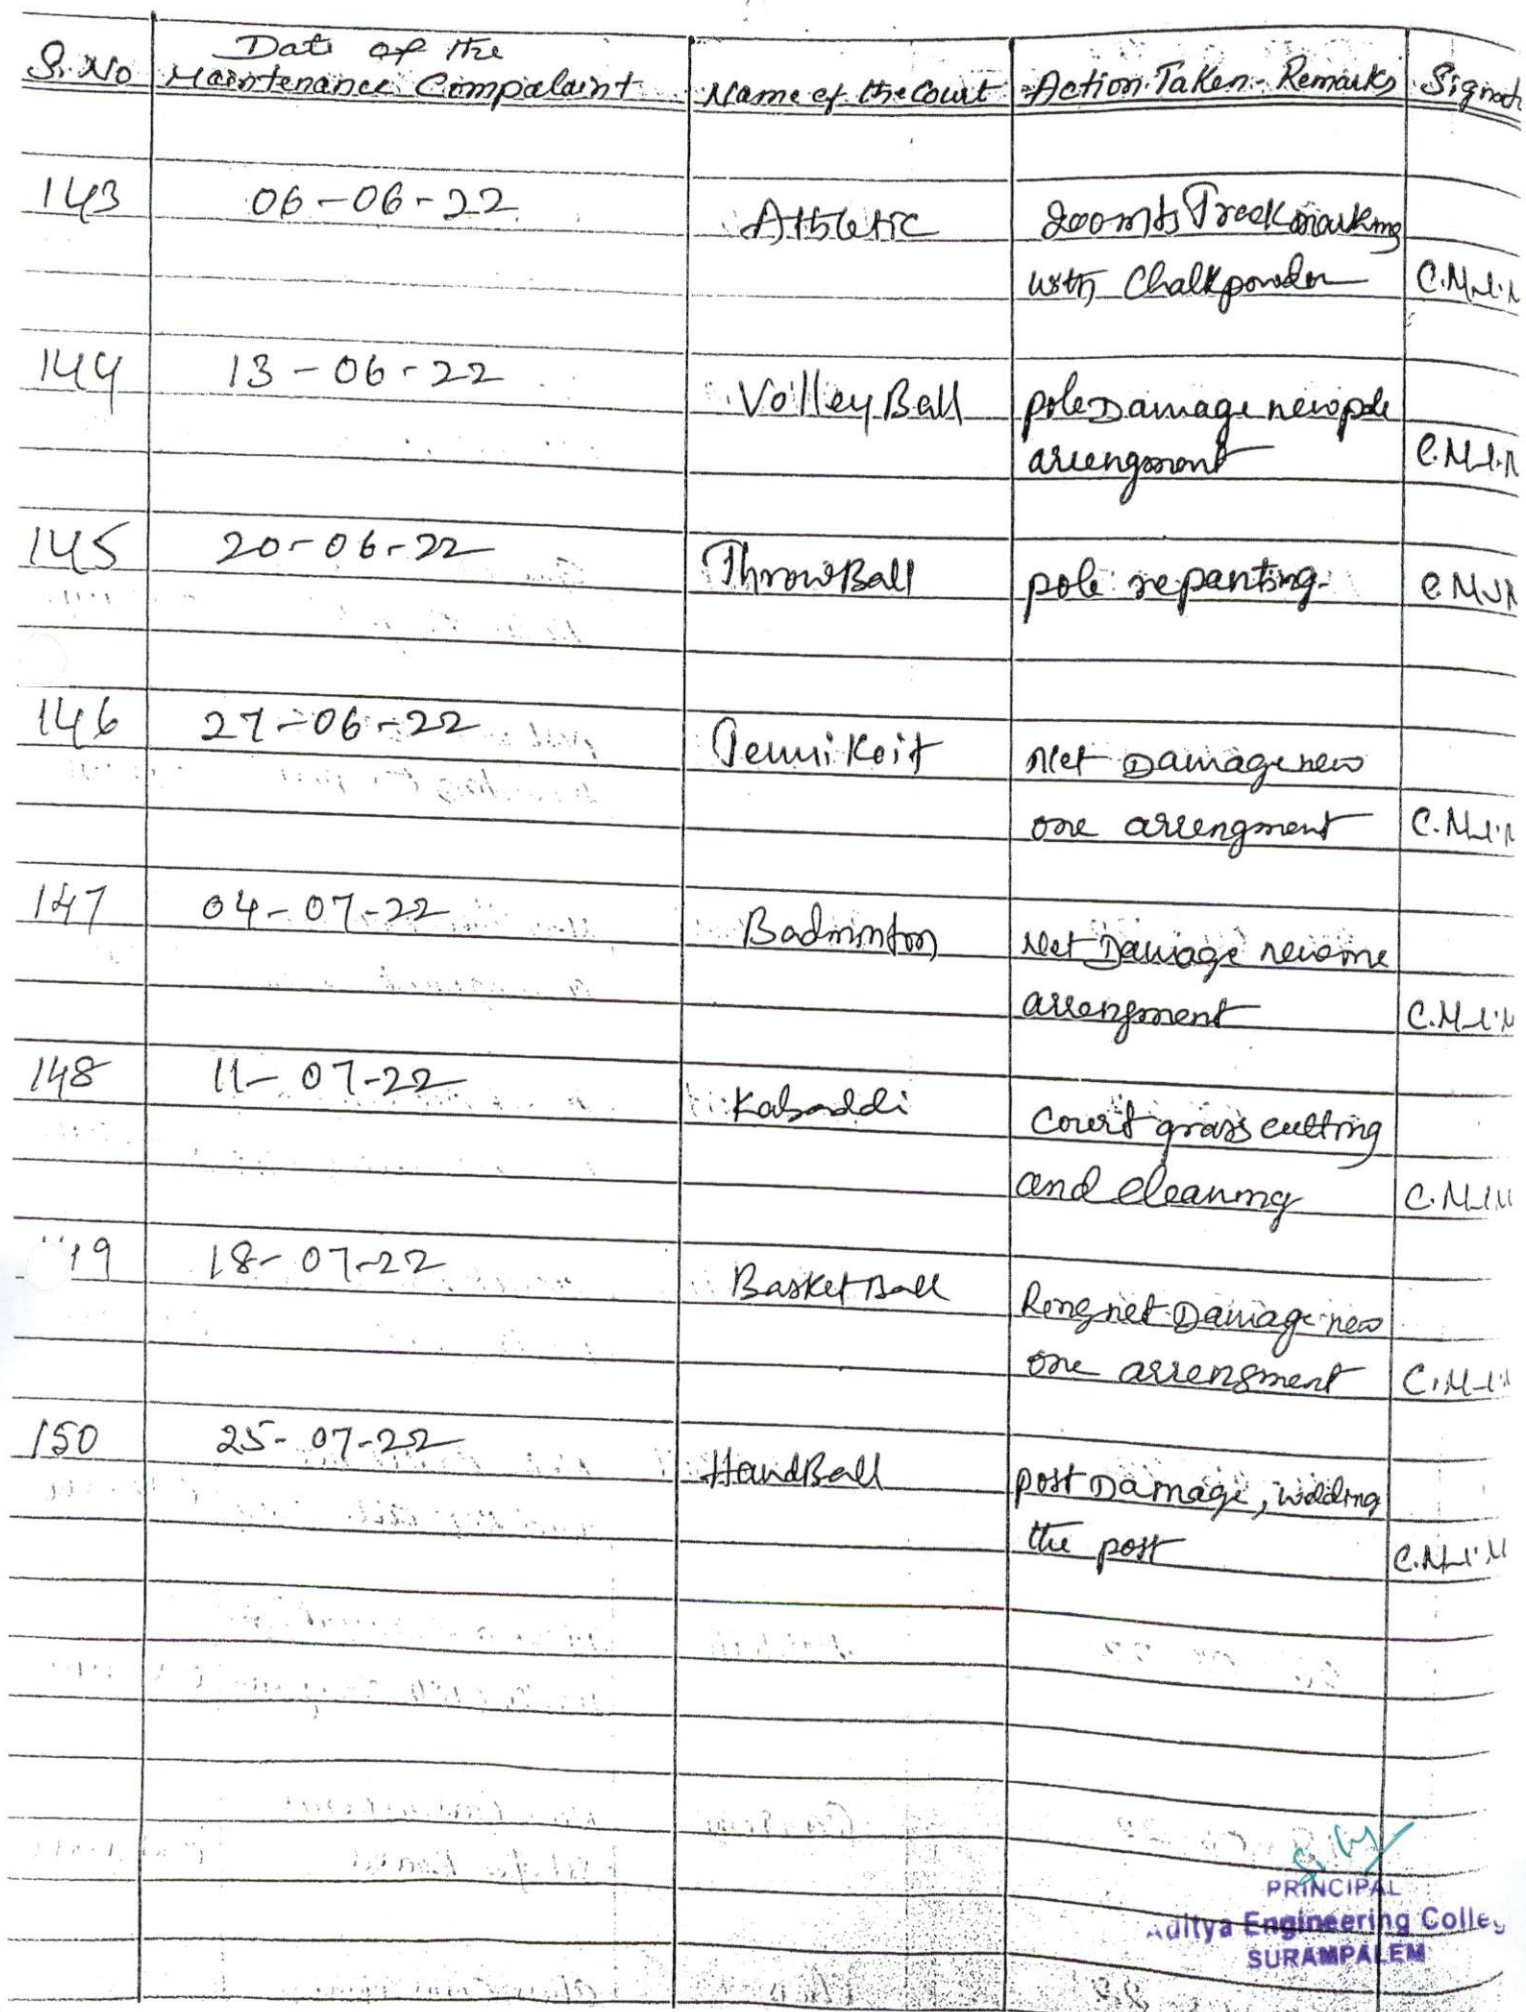 Date of the
S. No Maintenance Compalaint Name of the Court Action Taken - Remarks Signat
143 06-06-22 Athletic 200mts Treck marking
with Chalk powder C.M.
144 13-06-22 Volley Ball pole Damage new pole
arrengment C.M.
145 20-06-22 Throw Ball pole repanting C.M
146 27-06-22 Tennikoit Net Damage new
one arrengment C.M.
147 04-07-22 Badminton Net Damage new one
arrengment C.M.
148 11-07-22 Kabaddi Court grass cutting
and cleaning C.M.
9 18-07-22 Basket Ball Ring net Damage new
one arrengment C.M.
150 25-07-22 Hand Ball post Damage, wolding
the post C.M.
PRINCIPAL
Aditya Engineering Colle
SURAMPALEM